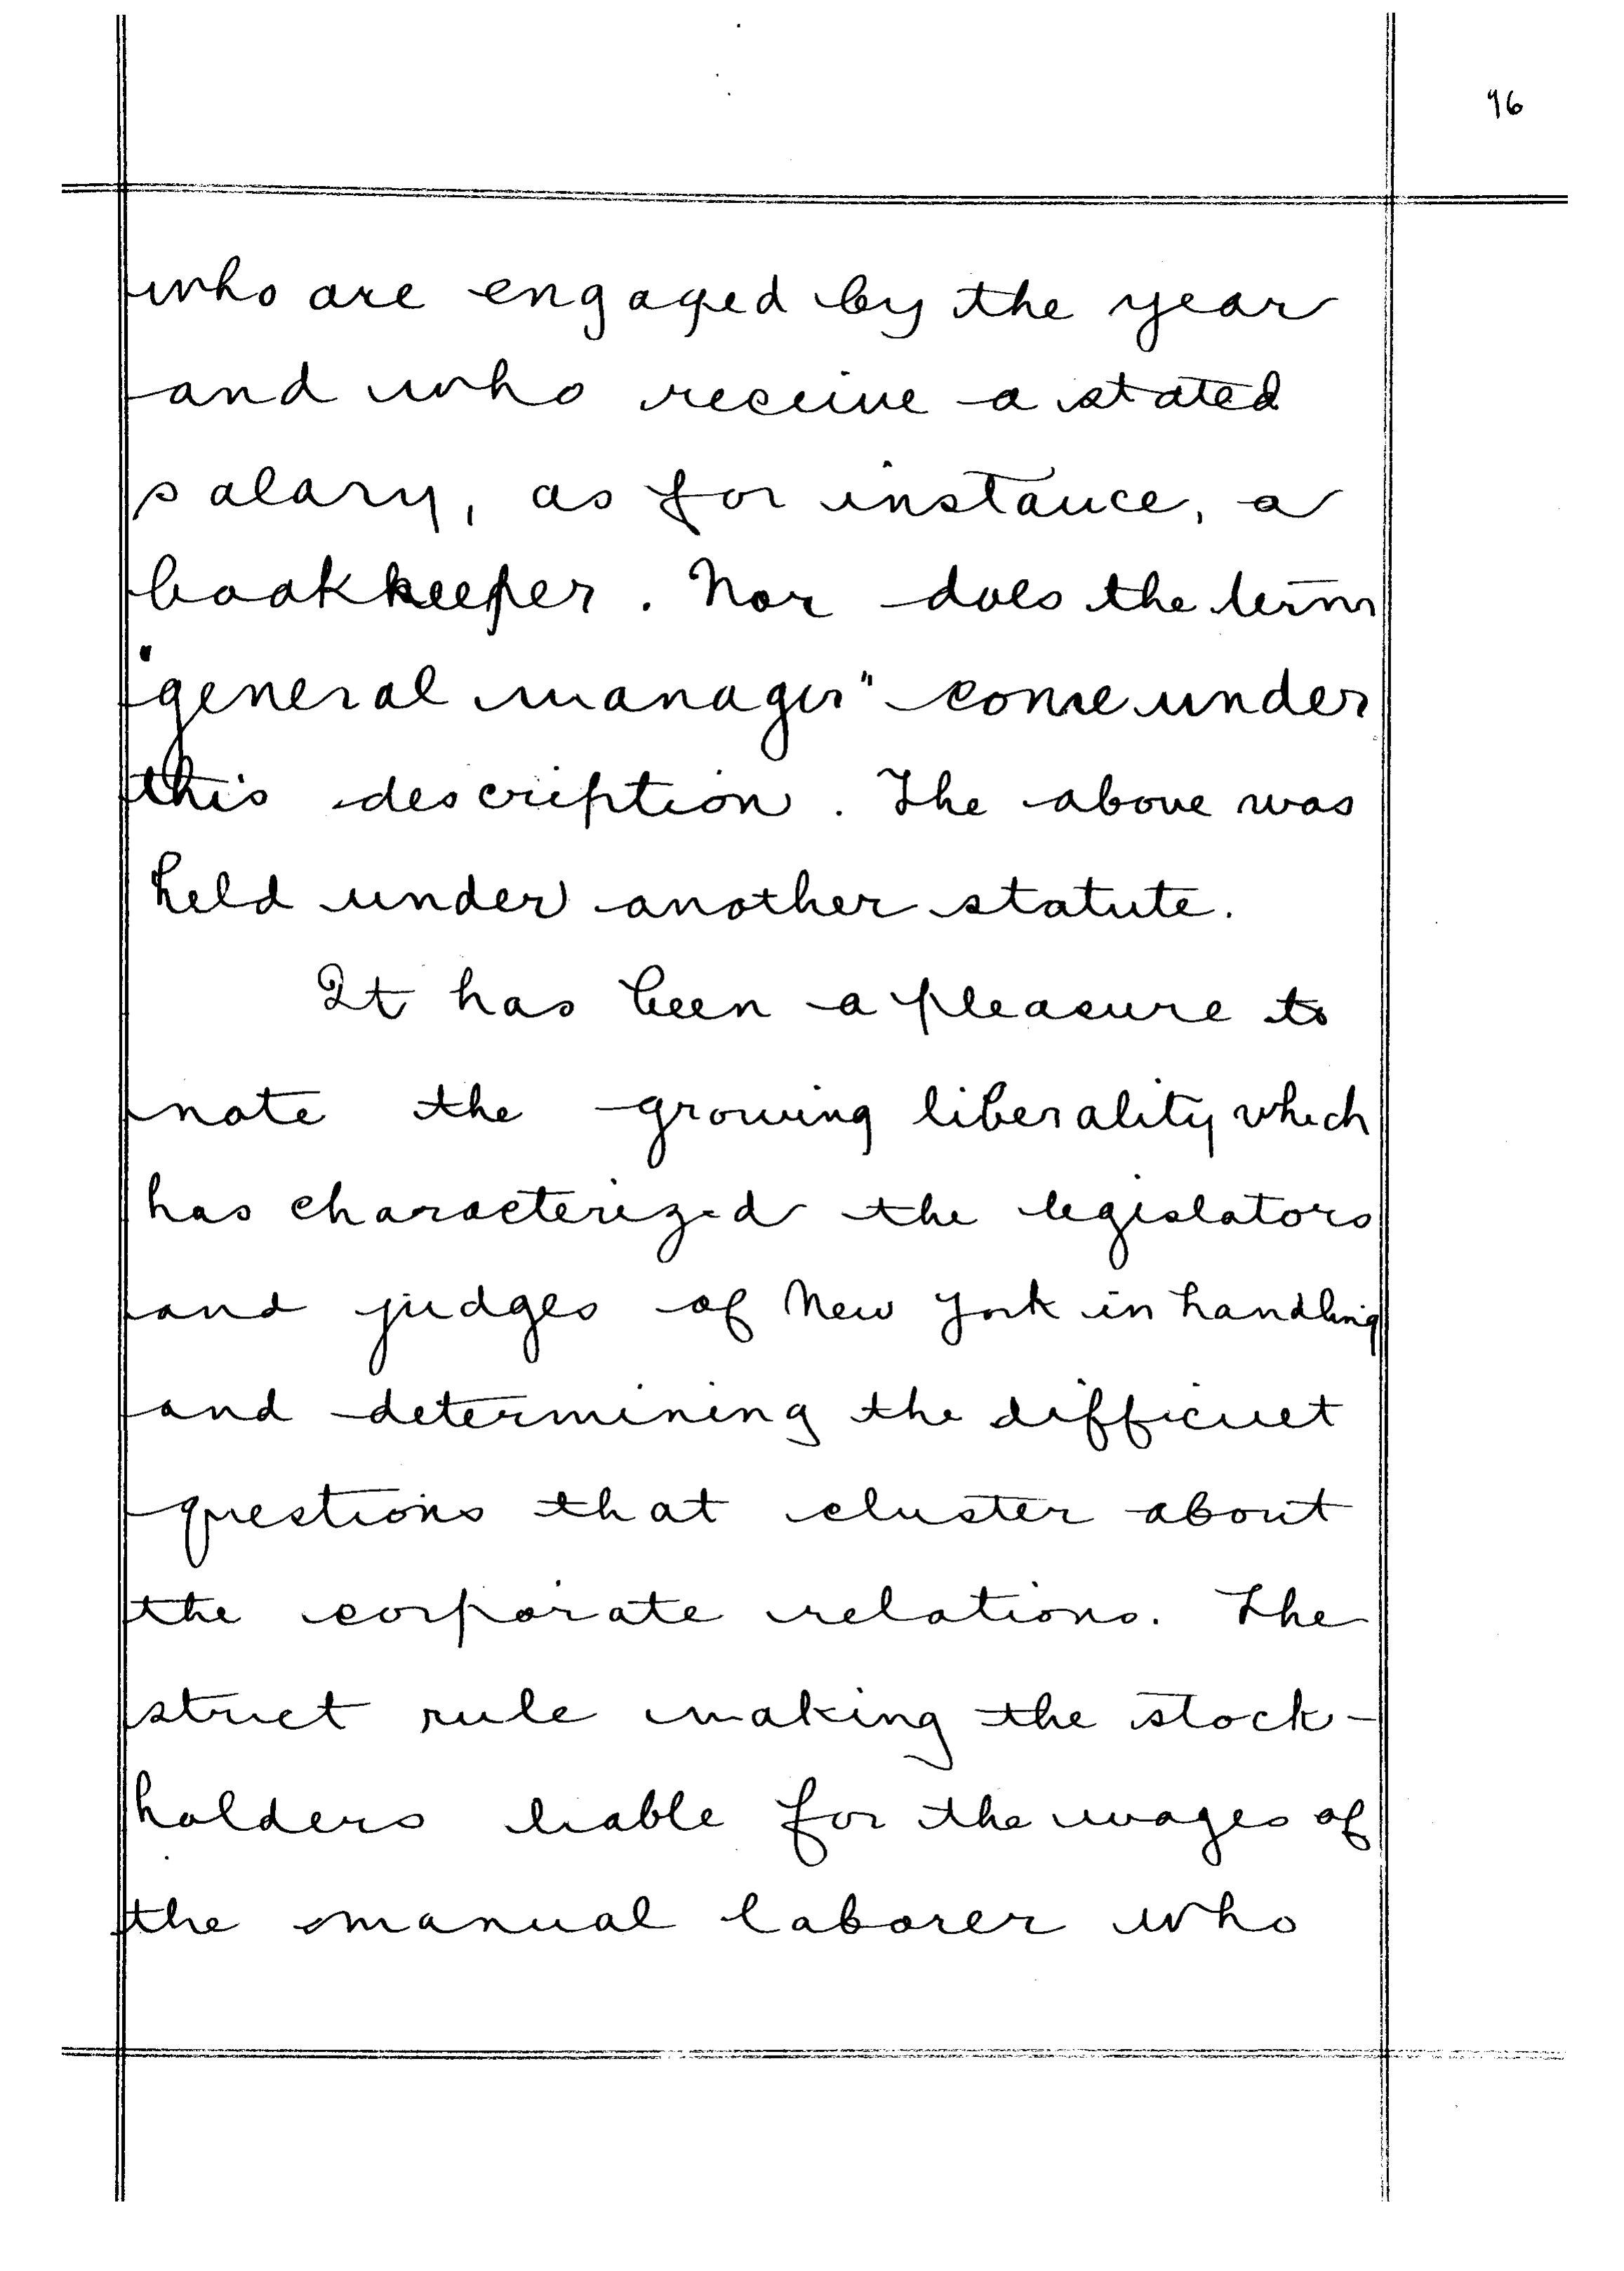 96
who are engaged by the year
and who receive a stated
salary, as for instance, a
bookkeeper. Nor does the term
"general manager" come under
this description. The above was
held under another statute.
It has been a pleasure to
note the growing liberality which
has characterized the legislators
and judges of New York in handling
and determining the difficult
questions that cluster about
the corporate relations. The
strict rule making the stock-
holders liable for the wages of
the manual laborer who